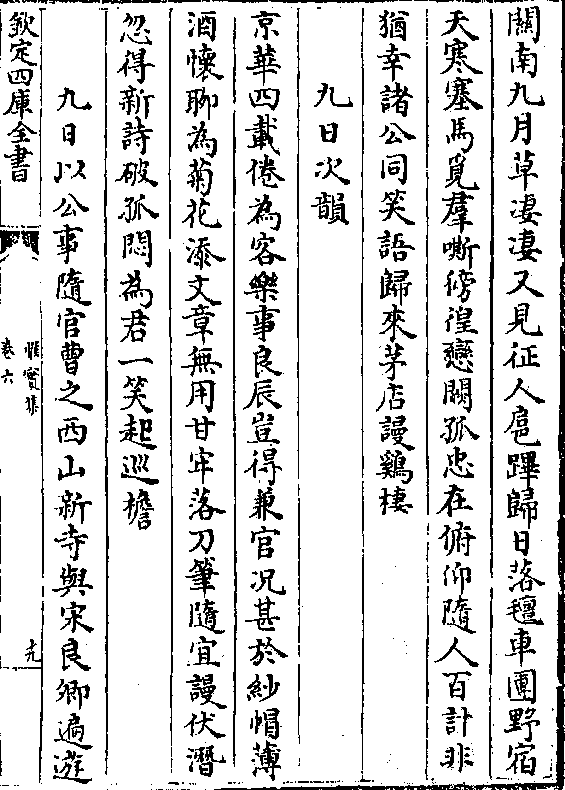 關南九月草凄凄又見征人扈蹕歸日落氊車團野宿
天寒塞馬覓羣嘶傍徨戀闕孤忠在俯仰隨人百計非
猶幸諸公同笑語歸來茅店謾鷄棲
九日次韻
京華四載倦為客樂事良辰豈得兼官况甚於紗帽薄
酒懷聊為菊花添文章無用甘牢落刀筆隨宜謾伏潛
忽得新詩破孤悶為君一笑起巡檐
九日以公事隨官曹之西山新寺與宋良卿遍遊
欽定四庫全書
惟實集
卷六